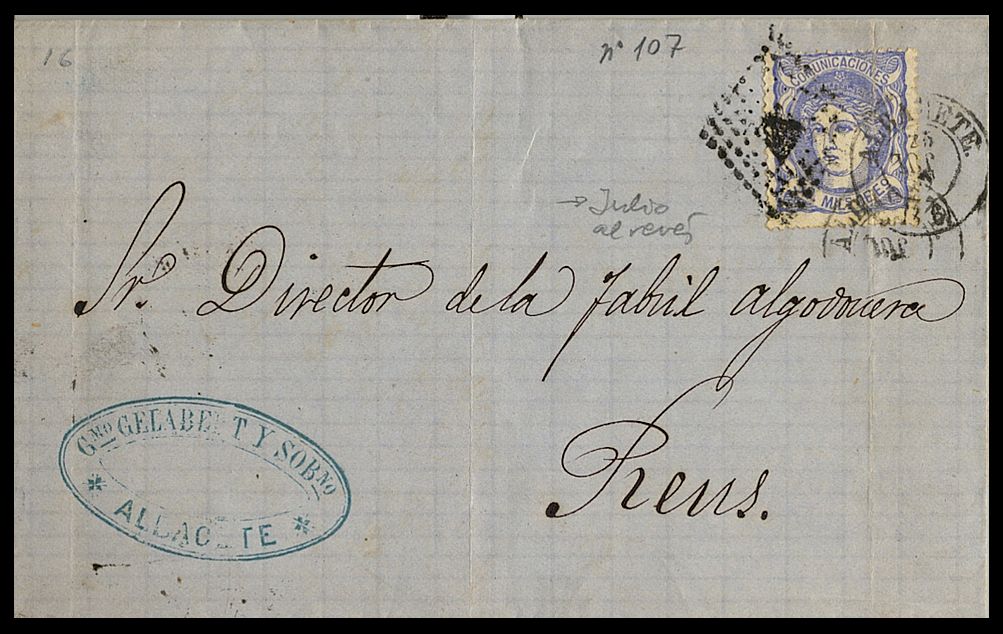 16
nº 107
COMUNICACIONES
MILS DE Eº
ALBACETE.
→ Julio
al revés
Sr. Director de la Fabril algodonera
Reus.
Gmo GELABERT Y SOBNO
ALBACETE